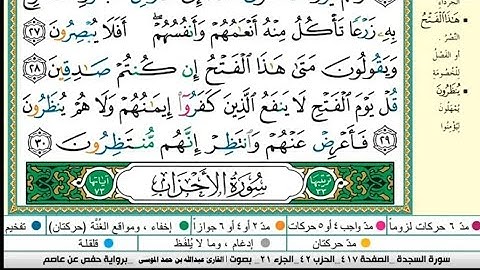 بِهِۦ زَرْعًا تَأْكُلُ مِنْهُ أَنْعَٰمُهُمْ وَأَنفُسُهُمْ ۖ أَفَلَا يُبْصِرُونَ ٢٧
وَيَقُولُونَ مَتَىٰ هَٰذَا ٱلْفَتْحُ إِن كُنتُمْ صَٰدِقِينَ ٢٨
قُلْ يَوْمَ ٱلْفَتْحِ لَا يَنفَعُ ٱلَّذِينَ كَفَرُوٓا۟ إِيمَٰنُهُمْ وَلَا هُمْ يُنظَرُونَ
٢٩ فَأَعْرِضْ عَنْهُمْ وَٱنتَظِرْ إِنَّهُم مُّنتَظِرُونَ ٣٠
سُورَةُ الأَحْزَابِ
هَٰذَا ٱلْفَتْحُ
النَّصْرُ
أو الفَصْلُ
للخُصُومَةِ
يُنظَرُونَ
يُمْهَلُونَ
لِيُؤْمِنُوا
مدّ ٦ حركات لزوماً
مدّ ٢ أو ٤ أو ٦ جوازاً
إخفاء، ومواقع الغُنَّة (حركتان)
تفخيم
مدّ واجب ٤ أو ٥ حركات
مدّ حركتان
إدغام، وما لا يُلفَظ
قلقلة
سورة السجدة _الصفحة ٤١٧_الحزب ٤٢_الجزء ٢١_ بصوت : القارئ عبدالله بن حمد الموسى _برواية حفص عن عاصم